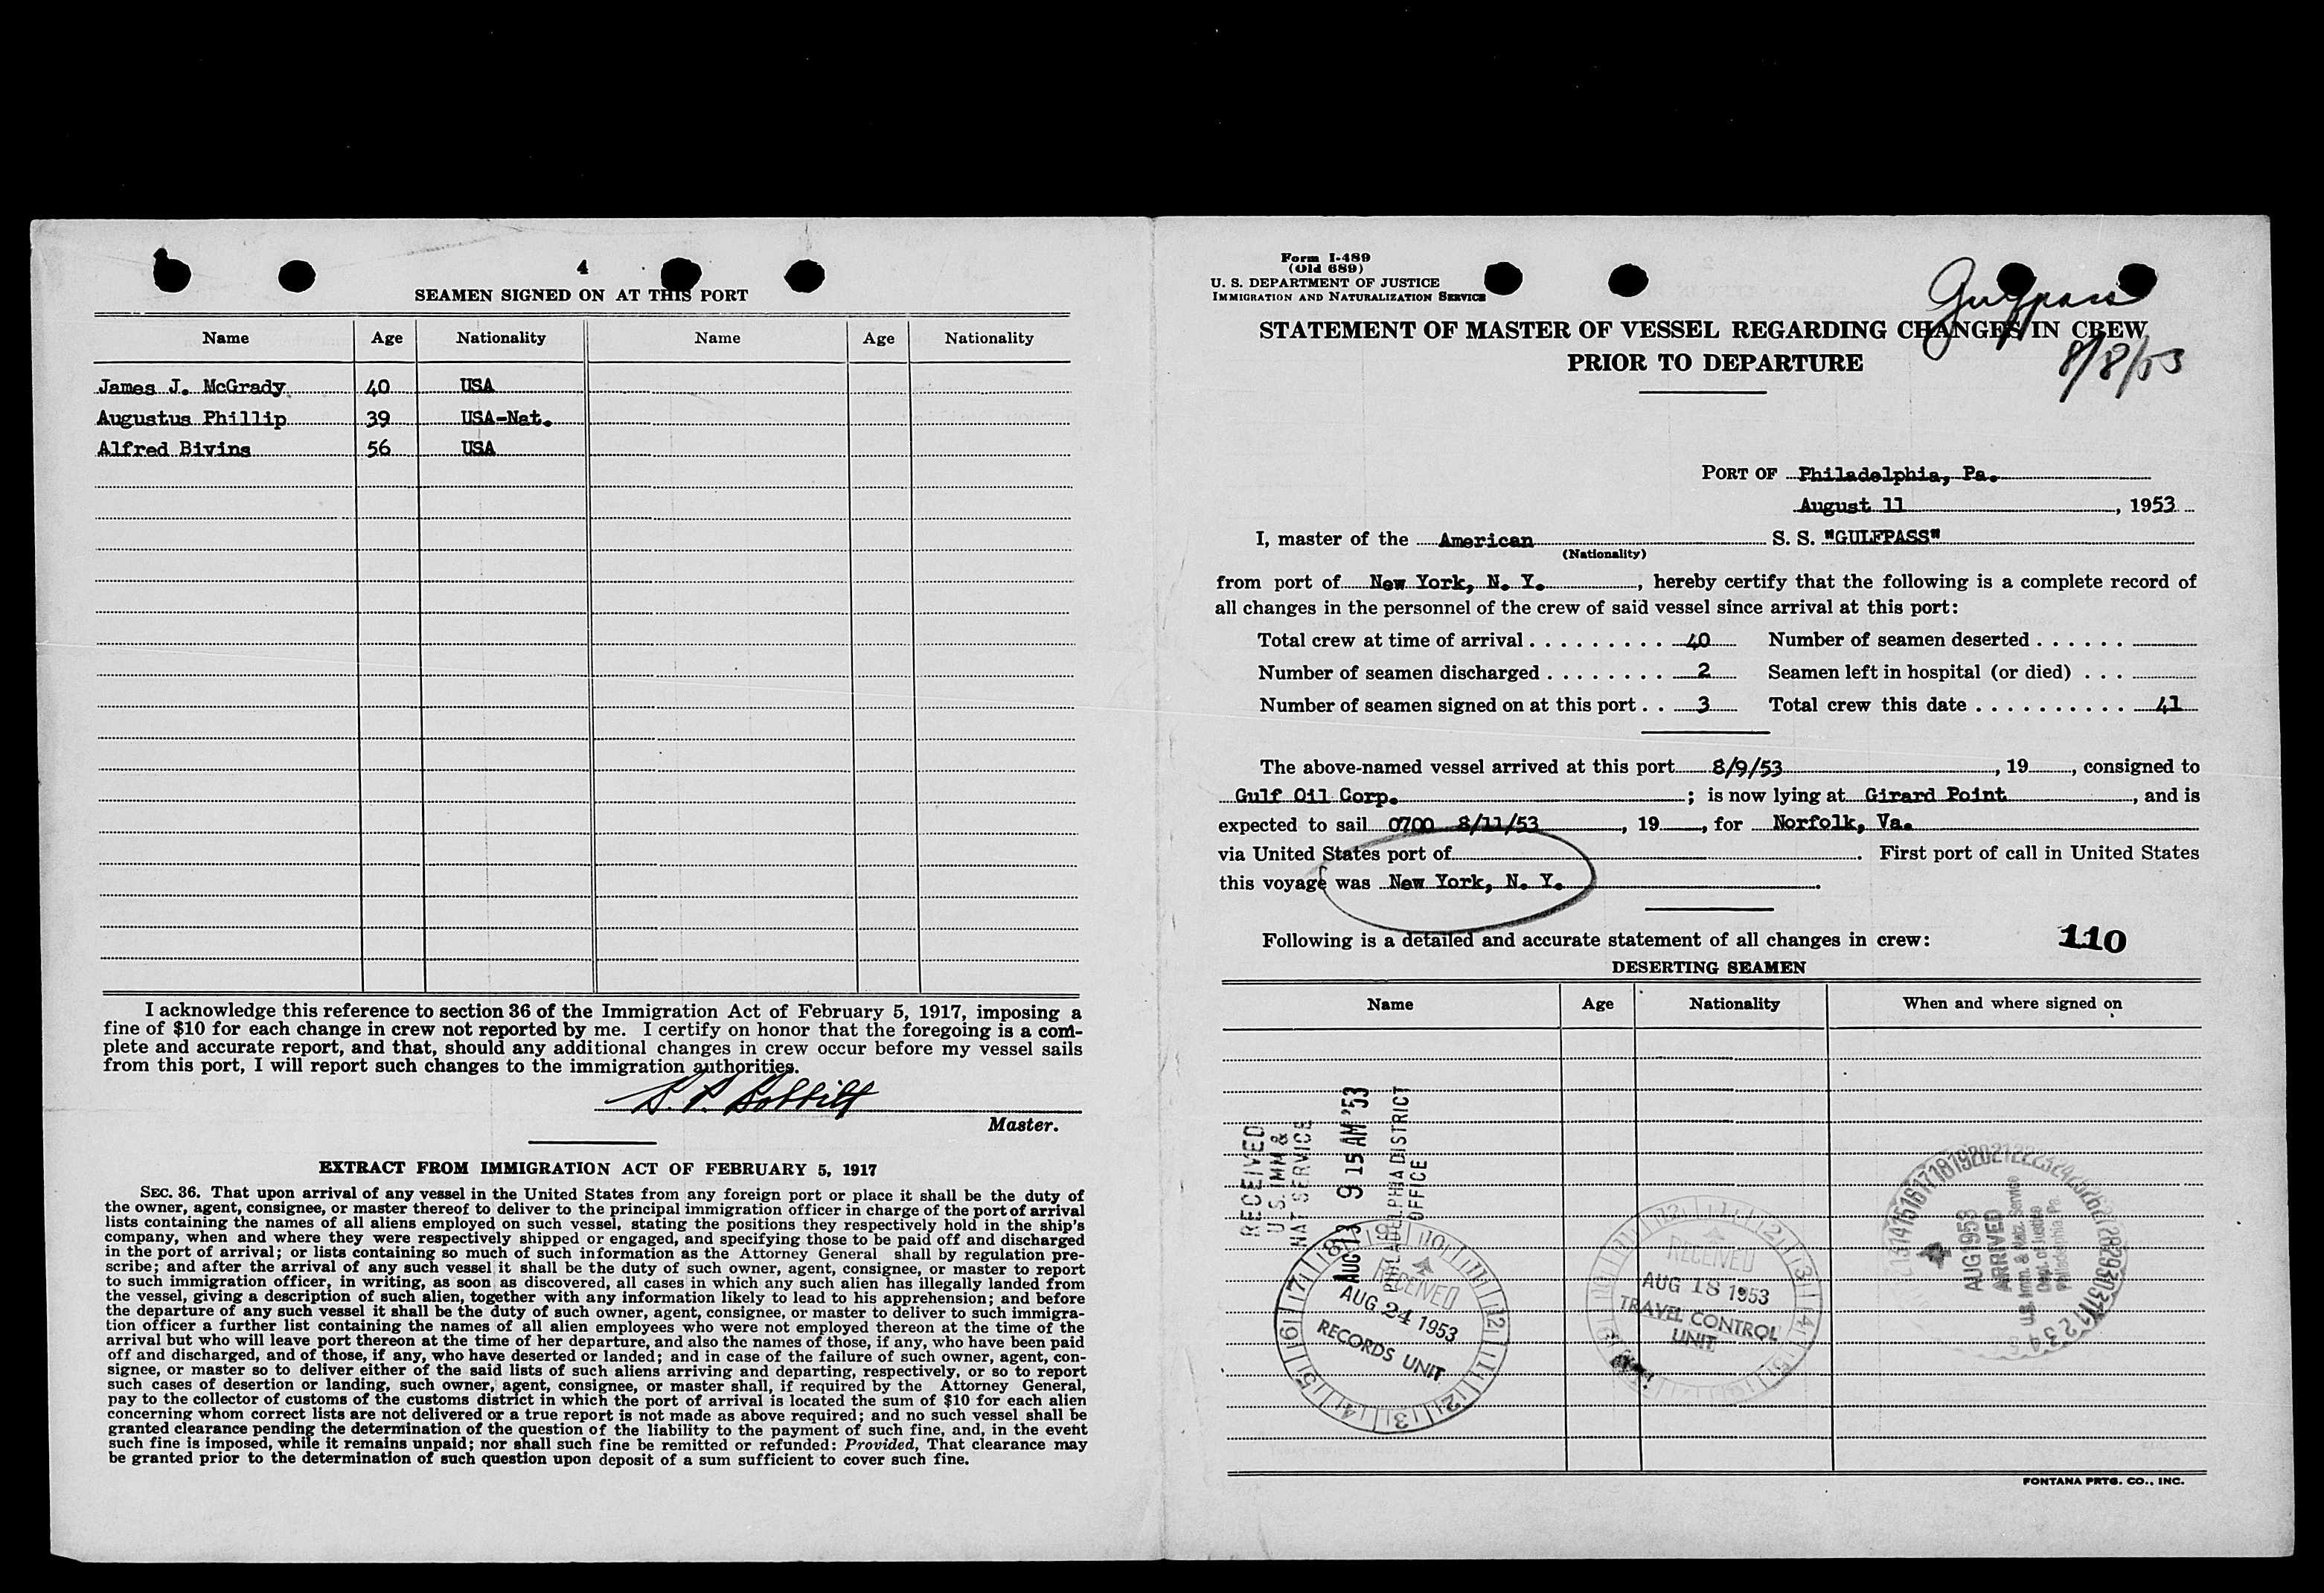 4
SEAMEN SIGNED ON AT THIS PORT
Name Age Nationality Name Age Nationality
James J. McGrady 40 USA
Augustus Phillip 39 USA-Nat.
Alfred Bivins 56 USA
I acknowledge this reference to section 36 of the Immigration Act of February 5, 1917, imposing a
fine of $10 for each change in crew not reported by me. I certify on honor that the foregoing is a com-
plete and accurate report, and that, should any additional changes in crew occur before my vessel sails
from this port, I will report such changes to the immigration authorities.
Master.
EXTRACT FROM IMMIGRATION ACT OF FEBRUARY 5, 1917
SEC. 36. That upon arrival of any vessel in the United States from any foreign port or place it shall be the duty of
the owner, agent, consignee, or master thereof to deliver to the principal immigration officer in charge of the port of arrival
lists containing the names of all aliens employed on such vessel, stating the positions they respectively hold in the ship's
company, when and where they were respectively shipped or engaged, and specifying those to be paid off and discharged
in the port of arrival; or lists containing so much of such information as the Attorney General shall by regulation pre-
scribe; and after the arrival of any such vessel it shall be the duty of such owner, agent, consignee, or master to report
to such immigration officer, in writing, as soon as discovered, all cases in which any such alien has illegally landed from
the vessel, giving a description of such alien, together with any information likely to lead to his apprehension; and before
the departure of any such vessel it shall be the duty of such owner, agent, consignee, or master to deliver to such immigra-
tion officer a further list containing the names of all alien employees who were not employed thereon at the time of the
arrival but who will leave port thereon at the time of her departure, and also the names of those, if any, who have been paid
off and discharged, and of those, if any, who have deserted or landed; and in case of the failure of such owner, agent, con-
signee, or master so to deliver either of the said lists of such aliens arriving and departing, respectively, or so to report
such cases of desertion or landing, such owner, agent, consignee, or master shall, if required by the Attorney General,
pay to the collector of customs of the customs district in which the port of arrival is located the sum of $10 for each alien
concerning whom correct lists are not delivered or a true report is not made as above required; and no such vessel shall be
granted clearance pending the determination of the question of the liability to the payment of such fine, and, in the event
such fine is imposed, while it remains unpaid; nor shall such fine be remitted or refunded: Provided, That clearance may
be granted prior to the determination of such question upon deposit of a sum sufficient to cover such fine.
Form I-489
(Old 689)
U. S. DEPARTMENT OF JUSTICE
IMMIGRATION AND NATURALIZATION SERVICE
Gulfpass
8/8/53
STATEMENT OF MASTER OF VESSEL REGARDING CHANGES IN CREW
PRIOR TO DEPARTURE
PORT OF Philadelphia, Pa.
August 11, 1953
I, master of the American S. S. "GULFPASS"
(Nationality)
from port of New York, N. Y., hereby certify that the following is a complete record of
all changes in the personnel of the crew of said vessel since arrival at this port:
Total crew at time of arrival 40 Number of seamen deserted
Number of seamen discharged 2 Seamen left in hospital (or died)
Number of seamen signed on at this port 3 Total crew this date 41
The above-named vessel arrived at this port 8/9/53, 19, consigned to
Gulf Oil Corp.; is now lying at Girard Point, and is
expected to sail 0700 8/11/53, 19, for Norfolk, Va.
via United States port of. First port of call in United States
this voyage was New York, N. Y.
Following is a detailed and accurate statement of all changes in crew:
110
DESERTING SEAMEN
Name Age Nationality When and where signed on
RECEIVED
U.S. IMM &
NAT SERVICE
AUG 13 9 15 AM '53
PHILADELPHIA DISTRICT
OFFICE
RECEIVED
AUG 24 1953
RECORDS UNIT
RECEIVED
AUG 18 1953
TRAVEL CONTROL
UNIT
AUG 1953
ARRIVED
U.S. Imm. & Natz. Service
Dept. of Justice
Philadelphia Pa.
FONTANA PRTG. CO., INC.